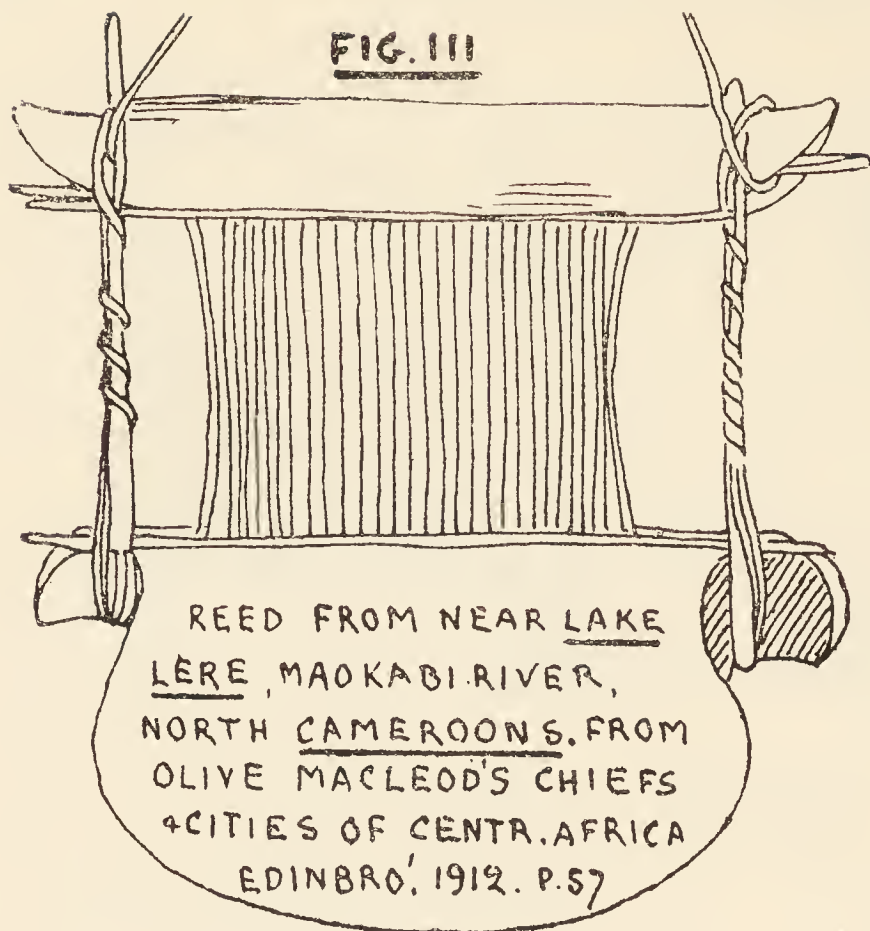 FIG. III
REED FROM NEAR LAKE
LÈRE, MAOKABI.RIVER,
NORTH CAMEROONS. FROM
OLIVE MACLEOD'S CHIEFS
&CITIES OF CENTR. AFRICA
EDINBRO', 1912. P.57